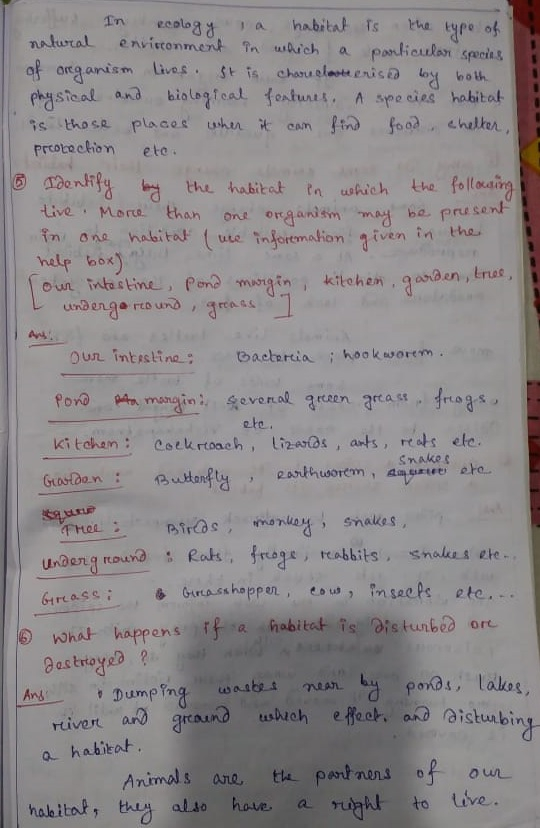 In ecology, a habitat is the type of
natural environment in which a particular species
of organism lives. It is characterised by both
physical and biological features. A species habitat
is those places wher it can find food, shelter,
protection etc.
⑤ Identify the habitat in which the following
live. More than one organism may be present
in one habitat (use information given in the
help box)
[our intastine, Pond margin, kitchen, garden, tree,
underground, grass]
Ans:
Our intestine: Bacteria, hookworm.
Pond margin: several green grass, frogs,
etc.
Kitchen: cockroach, lizards, ants, rats etc.
Garden: Butterfly, earthworm, snakes etc
Tree: Birds, monkey, snakes,
Underground: Rats, frogs, rabbits, snakes etc..
Grass: Grasshopper, cow, insects etc,...
⑥ What happens if a habitat is disturbed or
destroyed?
Ans • Dumping wastes near by ponds, lakes,
river and ground which effect. and disturbing
a habitat.
Animals are the partners of our
habitat, they also have a right to live.